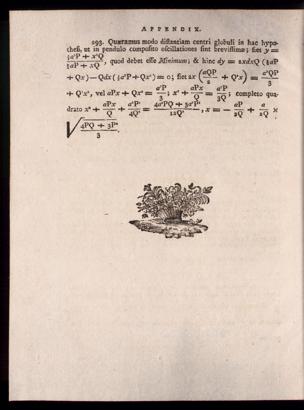 APPENDIX.
293. Quæramus modo distantiam centri globuli in hac hypo-
thesi, ut in pendulo composito oscillationes sint brevissimæ; fiet y =
(⅓a²P + x²Q) / (½aP + xQ), quod debet esse Minimum; & hinc dy = 2xdxQ (½aP
+ Qx) — Qdx (⅓a²P + Qx²) = 0; fiet 2x (aQP/2 + Q²x) = a²QP/3
+ Q²x², vel aPx + Qx² = a²P/3; x² + aPx/Q = a²P/3Q; completo qua-
drato x² + aPx/Q + a²P²/4Q² = (4a²PQ + 3a²P²)/12Q², x = — aP/2Q + a/2Q ×
√((4PQ + 3P²)/3).